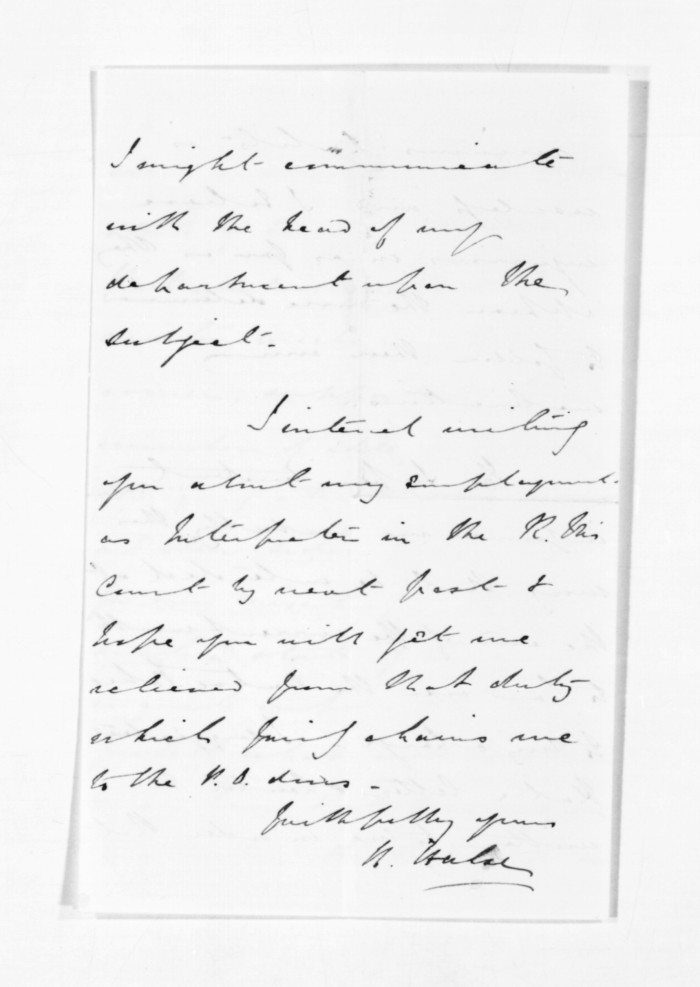 I might communicate
with the head of my
department upon the
subject.
I intend writing
you about my employment
as Interpreter in the R. Ms
Court by next post &
hope you will get me
relieved from that duty
which fairly chains me
to the P.O. doors.
Faithfully yours
H. Halse